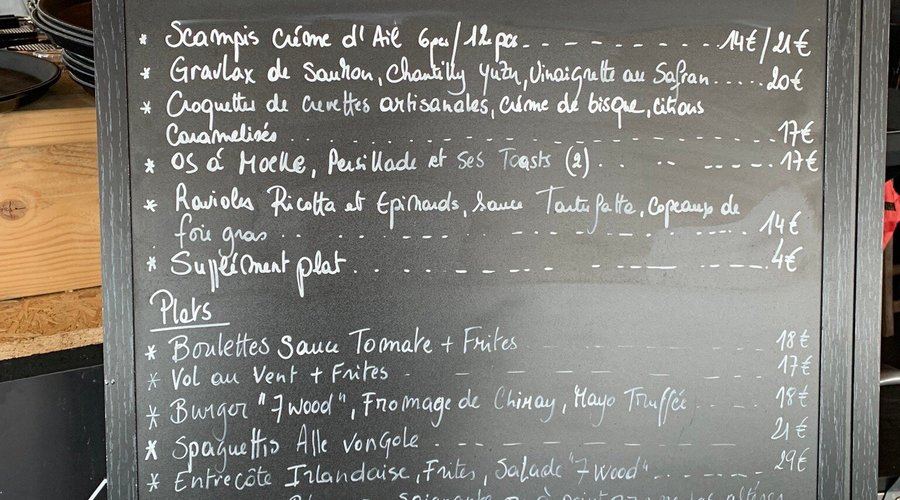 * Scampis Crème d'Ail 6pcs/12pcs - - - - - - - - 14€/21€
* Gravlax de Saumon, Chantilly yuzu, Vinaigrette au Safran..... 20€
* Croquettes de crevettes artisanales, crème de bisque, citrons
Caramelisés . . . - - - - - - - - 17€
* OS à Moelle, Persillade et ses Toasts (2) . . . . - - - - - 17€
* Ravioles Ricotta et Epinards, sauce Tartufatta, Copeaux de
foie gras . . . - - - - - - - - 14€
* Supplément plat . . . - - - - - - - - 4€
Plats
* Boulettes Sauce Tomate + Frites - - - - - - - - 18€
* Vol au Vent + Frites - - - - - - - - 17€
* Burger "7Wood", Fromage de Chimay, Mayo Truffée ..... 18€
* Spaguettis Alle vongole - - - - - - - - 21€
* Entrecôte Irlandaise, Frites, Salade "7Wood" - - - - 29€